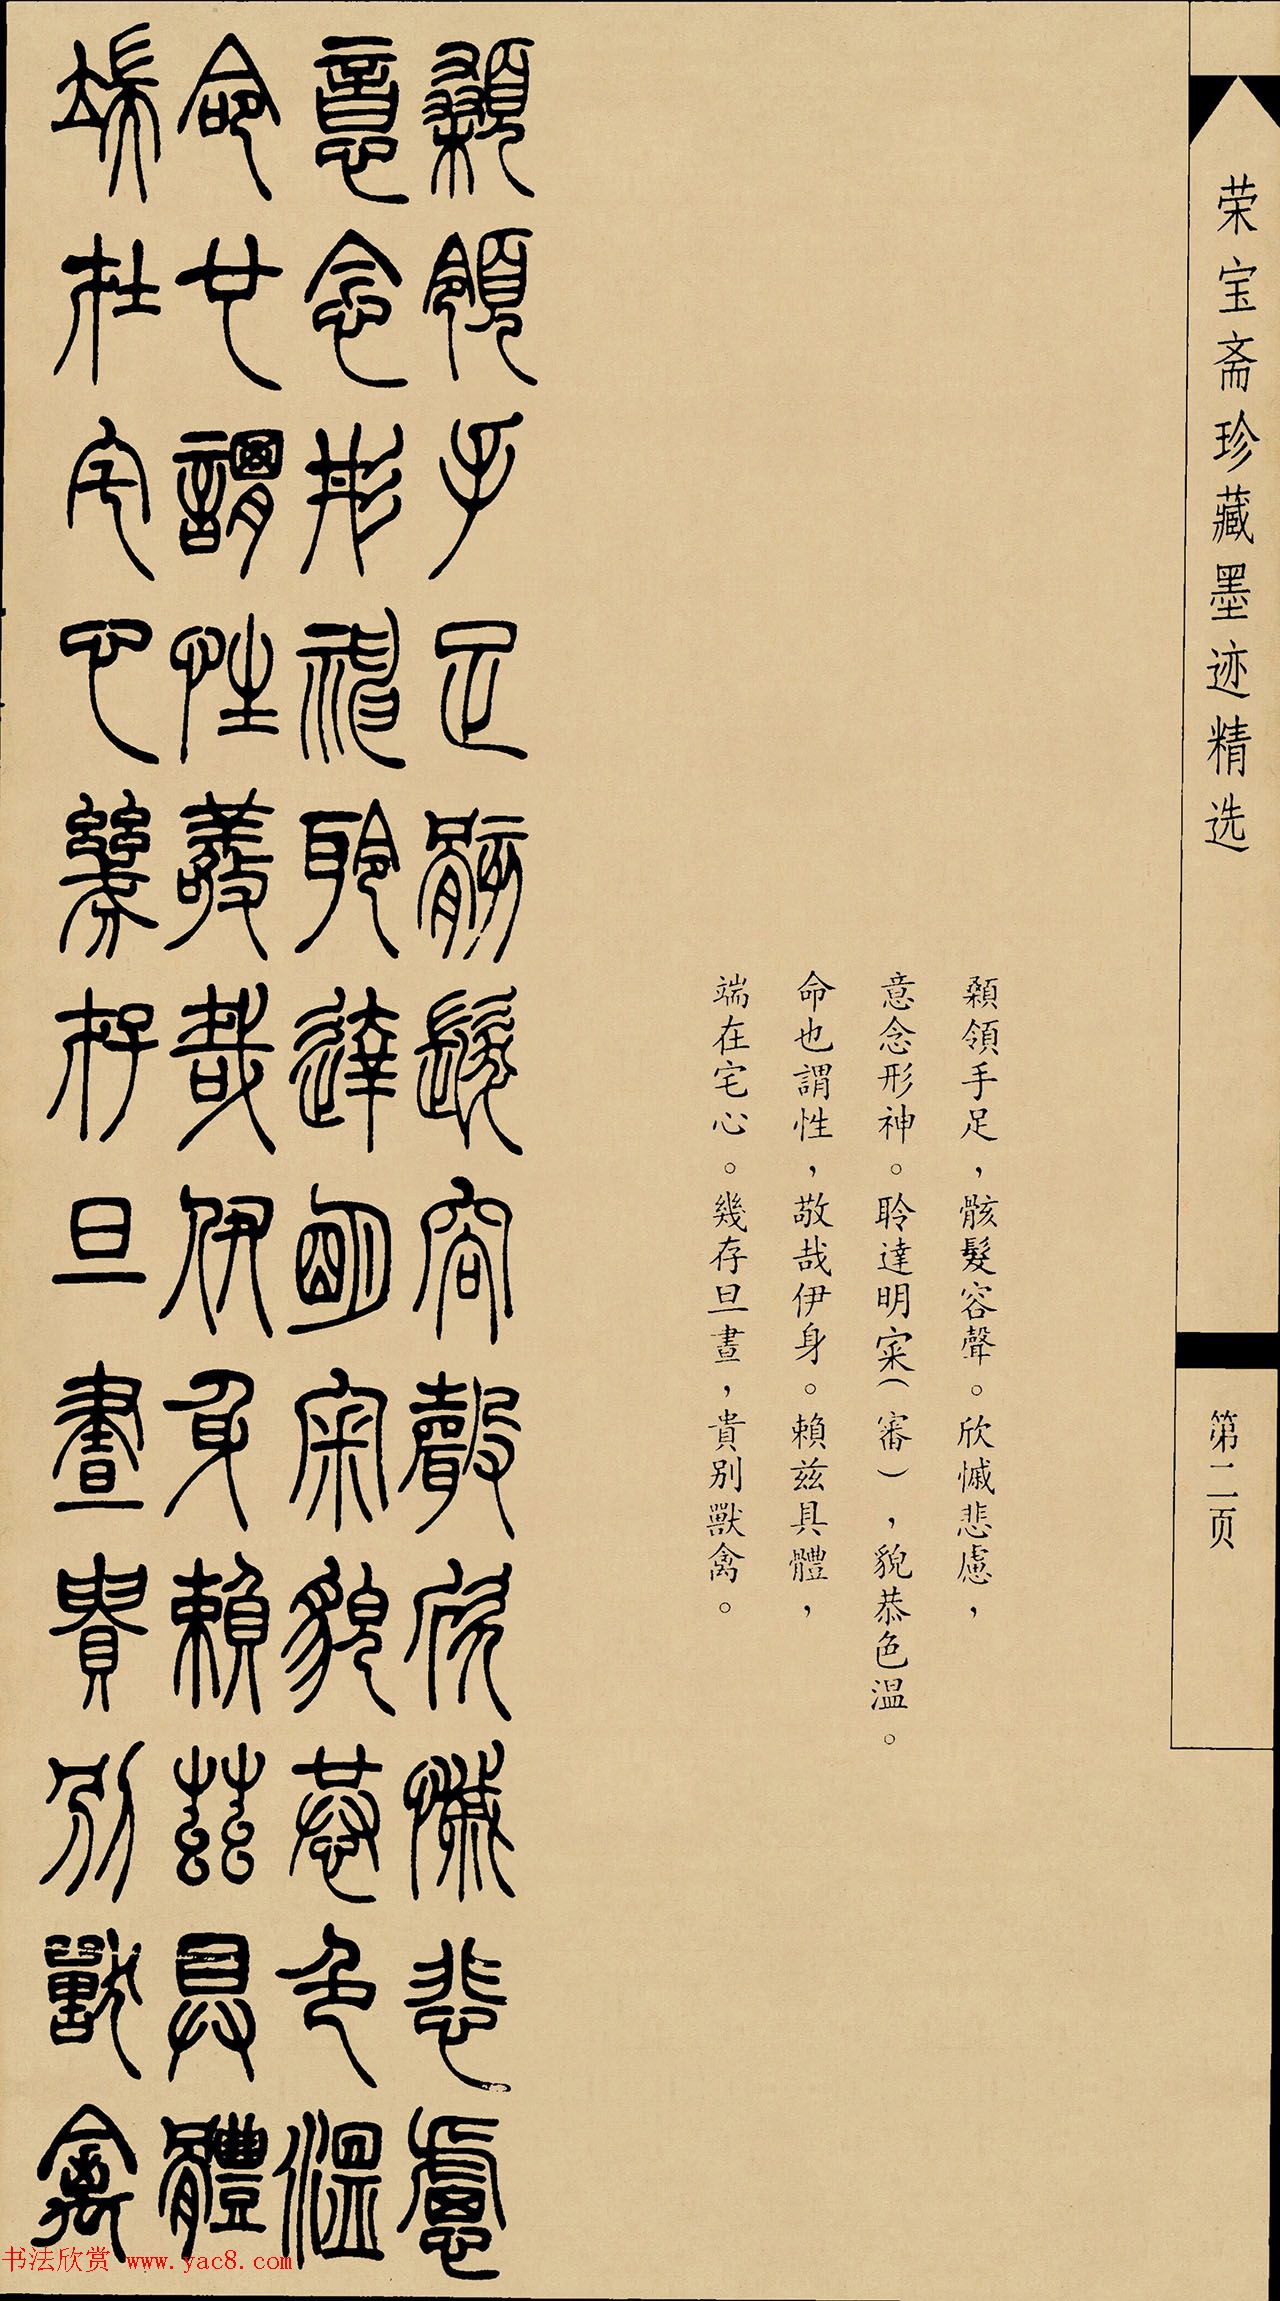 荣宝斋珍藏墨迹精选
第二页
顙領手足，骸髮容聲。欣慽悲慮，
意念形神。聆達明宷（審），貌恭色溫。
命也謂性，敬哉伊身。賴兹具體，
端在宅心。幾存旦晝，貴別獸禽。
顙領手足骸髮容聲欣慽悲慮
意念形神聆達明宷貌恭色溫
命也謂性敬哉伊身賴兹具體
端在宅心幾存旦晝貴別獸禽
书法欣赏 www.yac8.com